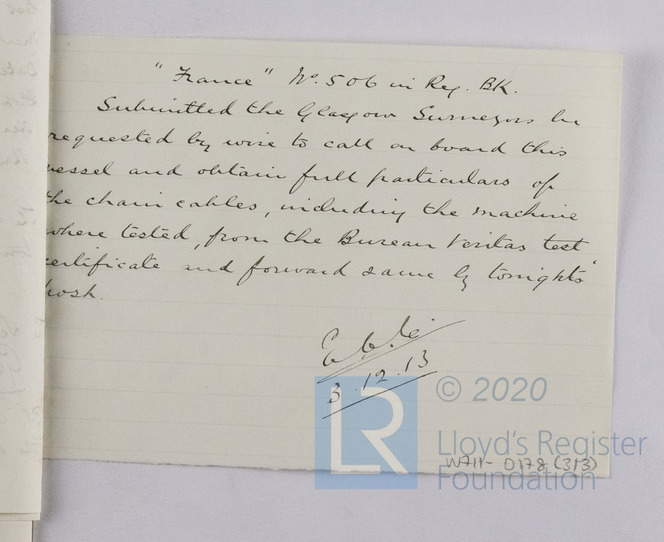 "France" No. 506 in Reg. BK.
Submitted the Glasgow Surveyors be
requested by wire to call on board this
vessel and obtain full particulars of
the chain cables, including the machine
where tested, from the Bureau Veritas test
certificate and forward same by tonights'
post.
3.12.13
© 2020
LR
Lloyd's Register
Foundation
W711-0178 (3/3)